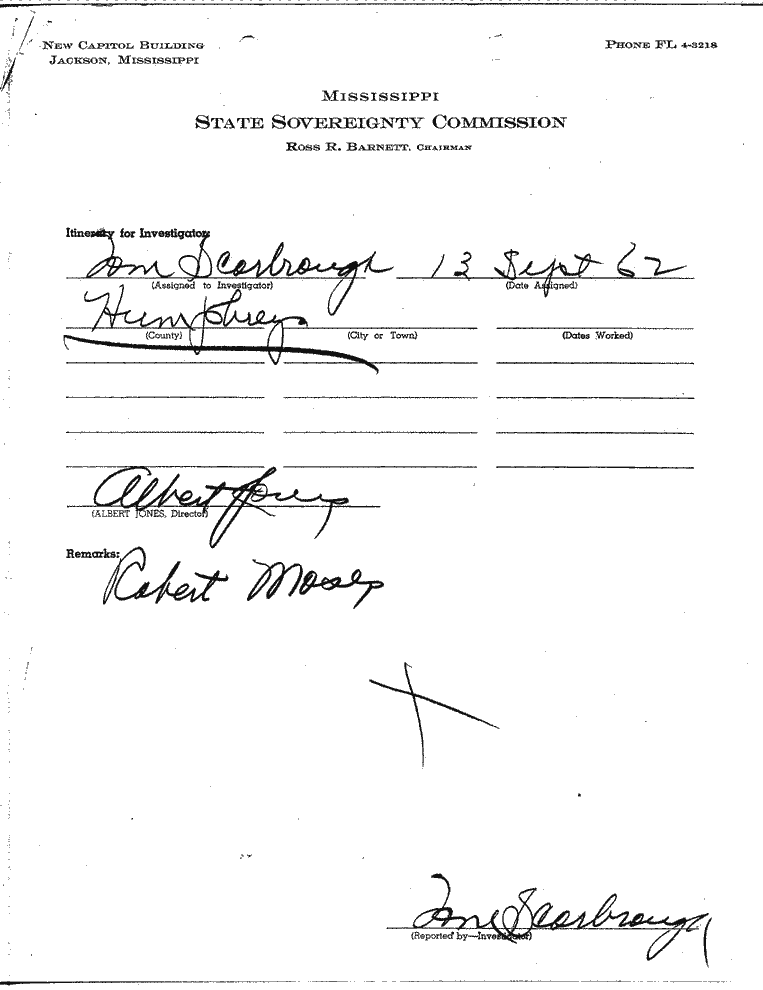 NEW CAPITOL BUILDING
JACKSON, MISSISSIPPI
PHONE FL 4-3218
MISSISSIPPI
STATE SOVEREIGNTY COMMISSION
ROSS R. BARNETT, CHAIRMAN
Itinerary for Investigator:
Tom Scarbrough 13 Sept 62
(Assigned to Investigator) (Date Assigned)
Humphreys
(County) (City or Town) (Dates Worked)
Albert Jones
(ALBERT JONES, Director)
Remarks:
Robert Moses
Tom Scarbrough
(Reported by—Investigator)